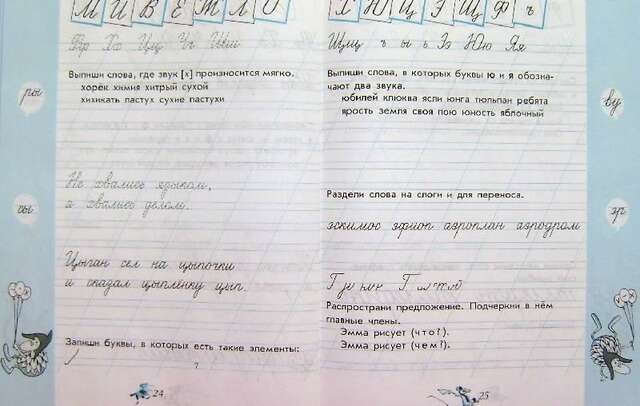 М И В Е Т Л О
Фф Хх Цц Чч
Выпиши слова, где звук [х] произносится мягко.
хорёк химия хитрый сухой
хихикать пастух сухие пастухи
ры
Не хвались языком,
а хвались делом.
Цыган сел на цыпочки
и сказал цыплёнку цып.
Запиши буквы, в которых есть такие элементы:
24
Х Ю Ц Э Щ Ф ъ
Щщ ъ ы ь Ээ Юю Яя
Выпиши слова, в которых буквы ю и я обозна-
чают два звука.
юбилей клюква ясли юнга тюльпан ребята
ярость земля своя пою юность яблочный
ву
Раздели слова на слоги и для переноса.
эр
эскимо эфиоп аэроплан аэродром
Распространи предложение. Подчеркни в нём
главные члены.
Эмма рисует (что?).
Эмма рисует (чем?).
25